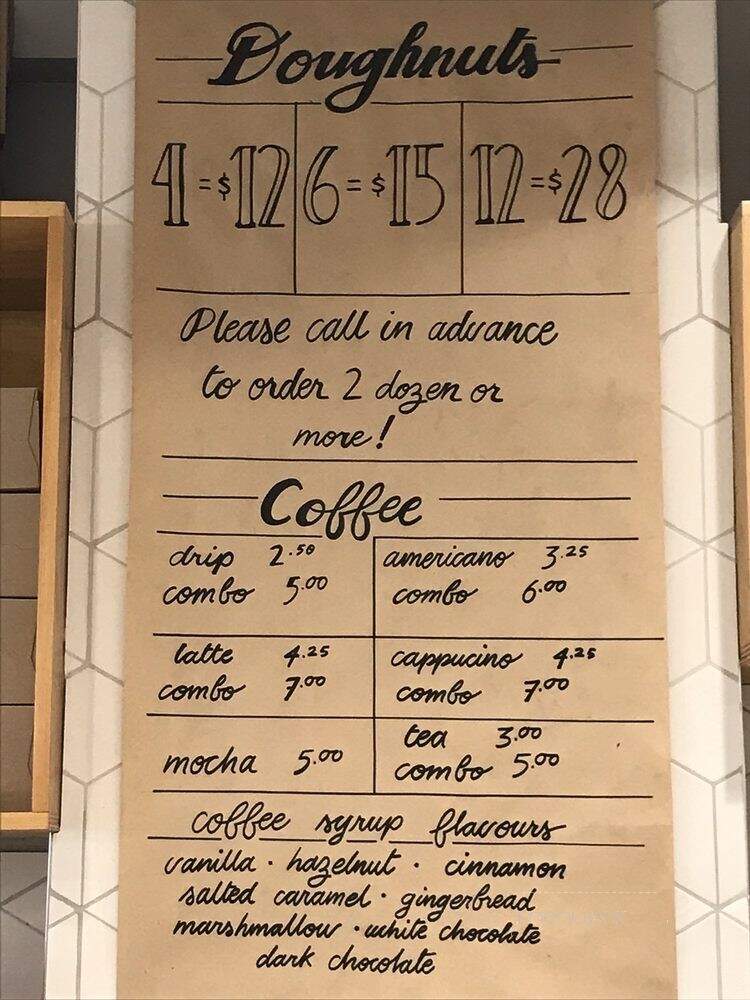 Doughnuts
4 = $12 6 = $15 12 = $28
Please call in advance
to order 2 dozen or
more!
Coffee
drip 2.50 americano 3.25
combo 5.00 combo 6.00
latte 4.25 cappucino 4.25
combo 7.00 combo 7.00
mocha 5.00 tea 3.00
combo 5.00
coffee syrup flavours
vanilla · hazelnut · cinnamon
salted caramel · gingerbread
marshmallow · white chocolate
dark chocolate